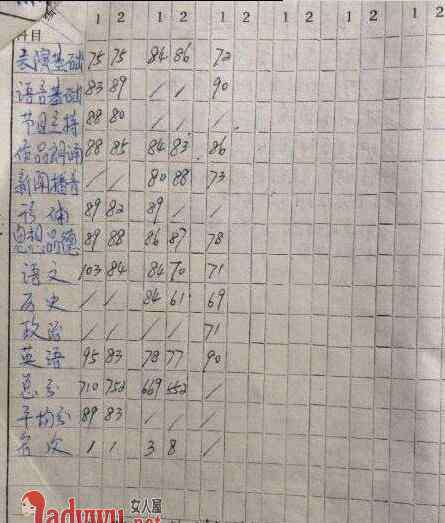 科目 1 2 1 2 1 2 1 2 1 2 1 2
表演基础 75 75 84 86 72
语音基础 83 89 / / 90
节目主持 88 80 / / /
作品朗诵 88 85 84 83 86
新闻播音 / / 80 88 73
89 82 89 / /
思想品德 89 88 86 87 78
语文 103 84 84 70 71
历史 / / 84 61 69
政治 / / / / 71
英语 95 83 78 77 90
总分 710 752 669 552 /
平均分 89 83 / / /
名次 1 1 3 8 /
女人屋
Ladywu.net